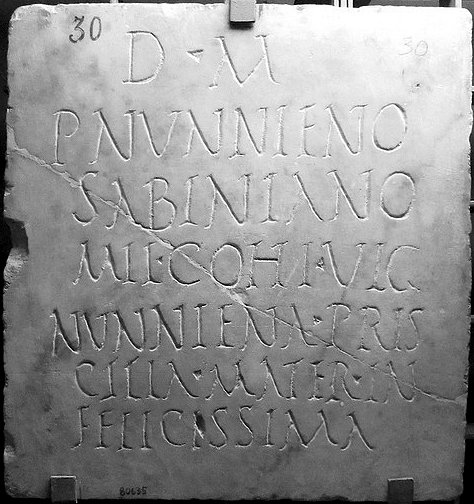 30
30
D · M
P NVNNIENO
SABINIANO
MIL·COH I·VIG
NVNNIENA·PRIS
CILLA·MATER·IN
FELICISSIMA
80635